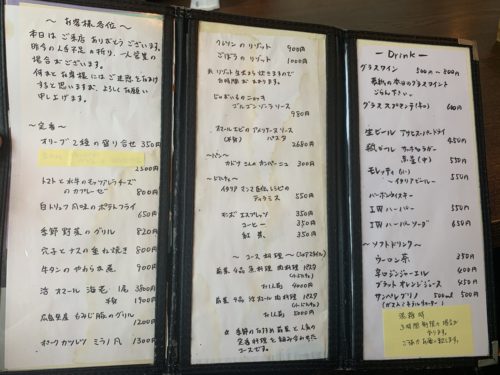 ～ お客様各位 ～
本日は ご来店 ありがとう ございます。
昨今の人手不足の折り、一人営業の
場合がございます。
何かと お客様にはご迷惑をおかけ
すると思いますが、よろしくお願い
申し上げます。
～ 定番 ～
オリーブ2種の盛り合せ 350円
2500円
トマトと水牛のモッツアレラチーズの
カプレーゼ 800円
白トリュフ風味のポテトフライ
650円
季節野菜のグリル 820円
穴子とナスの重ね焼き 800円
牛タンのやわらか煮 900円
活オマール海老 1尾 3800円
半身 1900円
広島県産 もみじ豚のグリル
1200円
ポークカツレツ ミラノ風 1300円
のリゾット 900円
ごぼうのリゾット 1000円
※ リゾット 生米から炊きますので
お時間が かかります。
じゃがいものニョッキ
ゴルゴンゾーラソース
980円
オマールエビのアメリケーヌソース
(半身) パスタ
2680円
～パン～
カンパーニュ 300円
～ドルチェ～
イタリア マンマ直伝レシピの
ティラミス 550円
エスプレッソ 350円
コーヒー 350円
紅茶 350円
～ コース料理 ～
前菜 4品 魚料理 肉料理 パスタ
4000円
前菜 4品 活オマール 肉料理 パスタ
5000円
☆ 季節のおすすめ前菜と人気の
定番料理を組み合わせた
コースです。
－ Drink －
グラスワイン 500円～800円
黒板の本日のグラスワイン
ごらん下さい。
グラススプマンテ(辛) 600円
生ビール アサヒスーパードライ
450円
瓶ビール サッポロラガー
赤星(中) 550円
モレッティ(小)
～イタリアビール～ 550円
バーボンウイスキー
I.W ハーパー 350円
I.W ハーパーソーダ 650円
～ソフトドリンク～
ウーロン茶 350円
辛口ジンジャーエール 400円
ブラッドオレンジジュース 450円
サンペレグリノ 500ml 500円
(ガス入ミネラルウォーター)
混雑時
2時間制限の場合が
あります。
ご協力お願い致します。